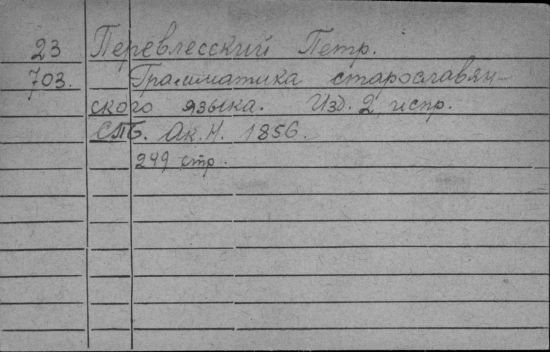 23 Перевлесский Петр.
703. Грамматика старославян-
ского языка. Изд. 2 испр.
СПБ. Ак. Н. 1856.
249 стр.